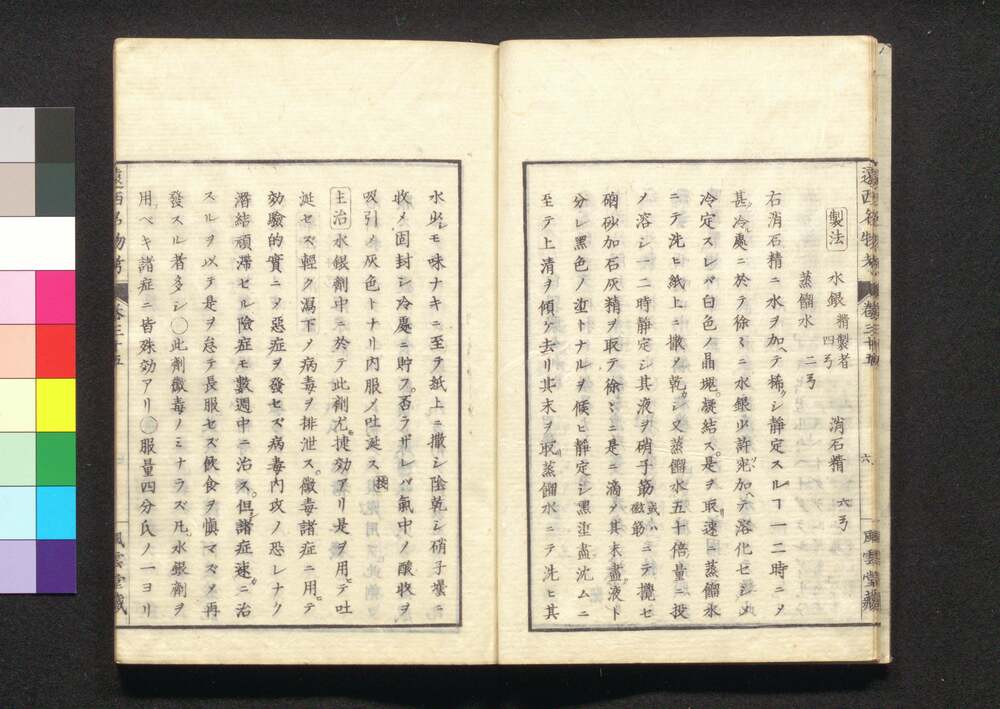 製法 水銀 精製者 四弓 消石精 六弓
蒸餾水 二弓
右消石精ニ水ヲ加テ稀シ靜定スルヿ一二時ニメ
甚冷處ニ於テ徐ミニ水銀少許宛加ヘテ溶化セシメ
冷定スレバ白色ノ晶塊凝結ス是ヲ取速ニ蒸餾水
ニテ洗ヒ紙上ニ撒メ乾シ又蒸餾水五十倍量ニ投
メ溶シ一二時靜定シ其液ヲ硝子筯 或ハ磁筯 ニテ攪セ
硇砂加石灰精ヲ取テ徐ミニ是ニ滴メ其末盡液ト
分レ黑色ノ渣トナルヲ候ヒ靜定シ黑渣盡沈ムニ
至テ上清ヲ傾ケ去リ其末ヲ取蒸餾水ニテ洗ヒ其
遠西名物考 卷三十五 六 風雲堂藏
水少モ味ナキニ至ラ紙上ニ撒シ陰乾シ硝子壜ニ
收メ固封シ冷處ニ貯フ否ラザレバ氣中ノ酸收ヲ
吸引メ灰色トナリ内服メ吐涎ス
主治 水銀劑中ニ於テ此劑尤捷効アリ是ヲ用テ吐
涎セズ輕ク瀉下メ病毒ヲ排泄ス黴毒諸症ニ用テ
効驗的實ニメ惡症ヲ發セズ病毒内攻ノ恐レナク
潛結頑滯セル險症モ數週中ニ治ス但諸症速ニ治
スルヲ以テ是ヲ怠テ長服セズ飲食ヲ愼マズメ再
發スル者多シ〇此劑黴毒ノミナラズ凡水銀劑ヲ
用ベキ諸症ニ皆殊効アリ〇服量四分氏ノ一ヨリ
遠西名物考 卷三十五 風雲堂藏